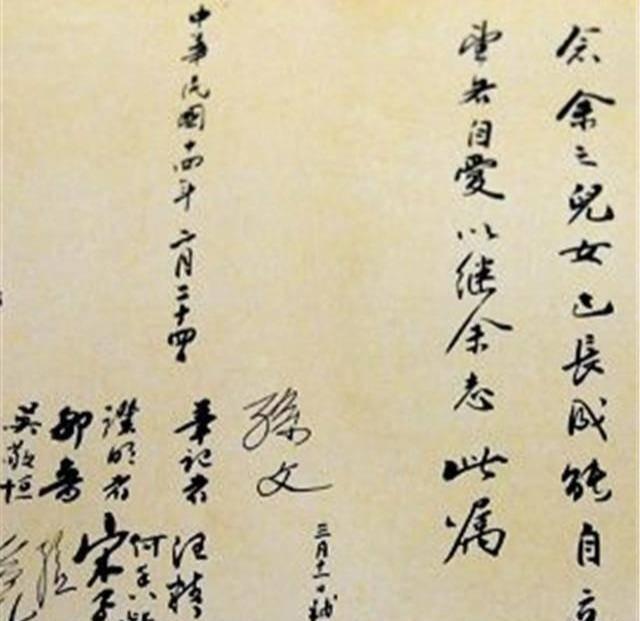 念余之兒女已長成能自立
望各自愛以继余志此嘱
孫文
三月十一日補
中華民國十四年二月二十四日
筆記者 汪精
證明者 何香凝
鄒魯 宋子
吳敬恒 孫